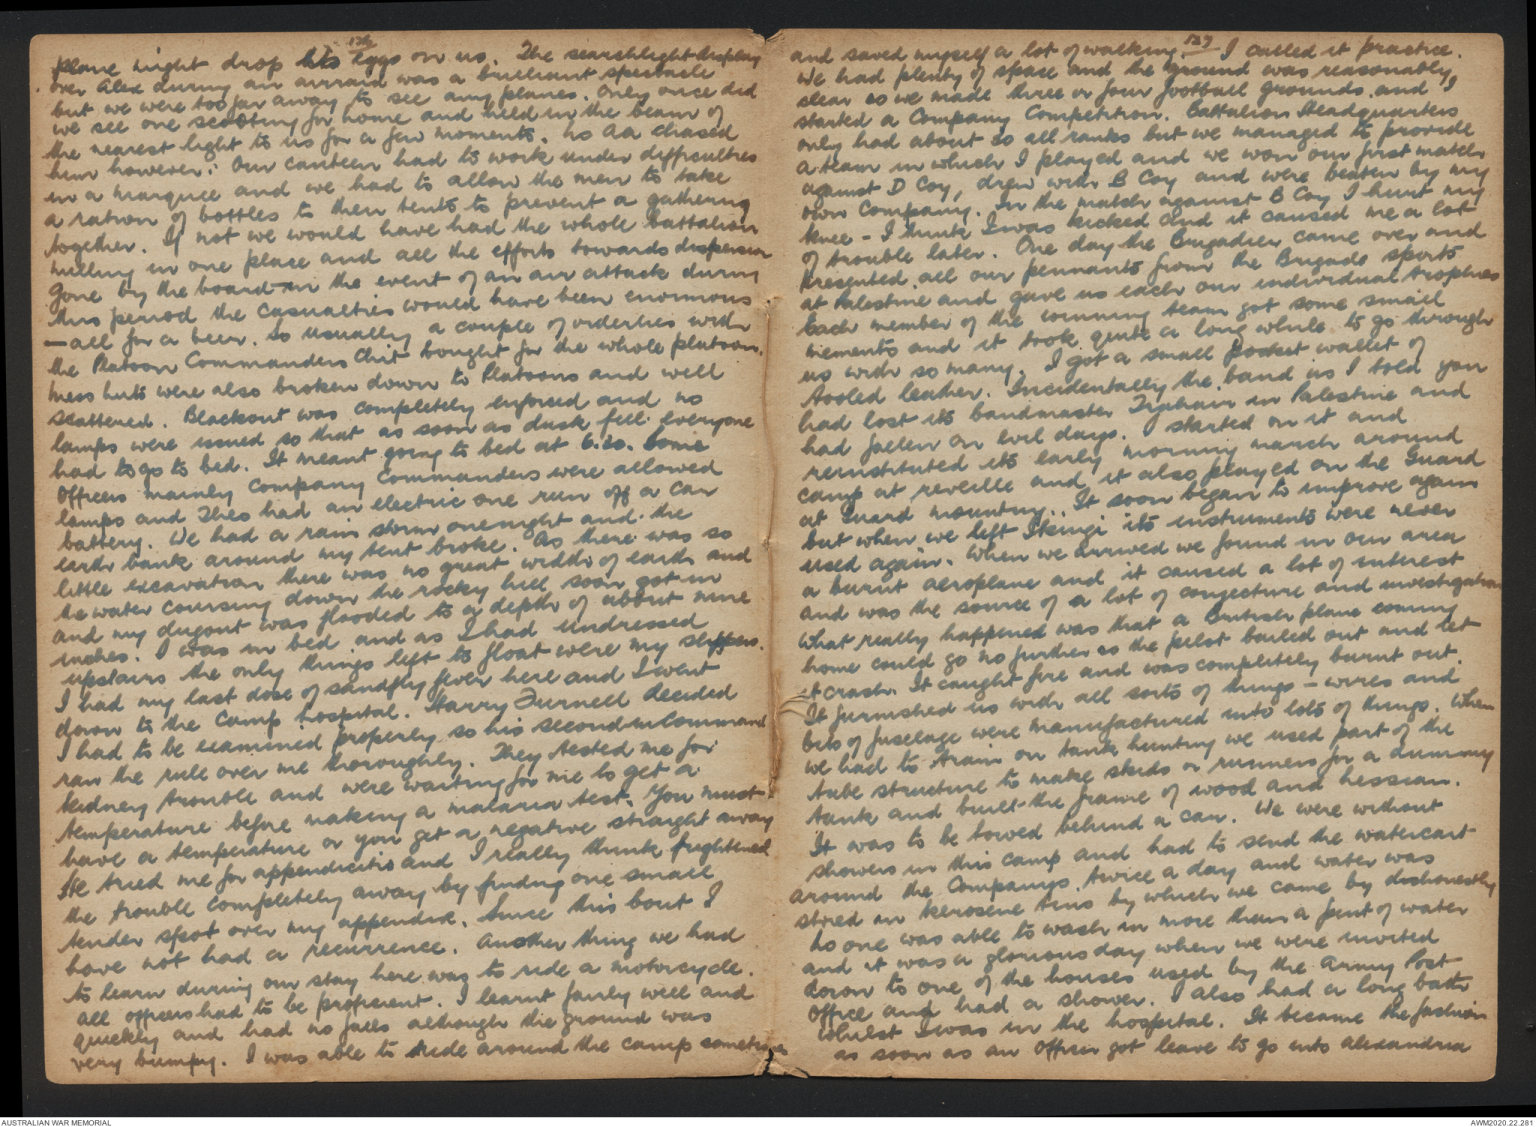 136
plane might drop his eggs on us. The searchlight display
over Alex during an airraid was a brilliant spectacle
but we were too far away to see any planes. Only once did
we see one scooting for home and held in the beam of
the nearest light to us for a few moments. No AA chased
him however. Our canteen had to work under difficulties
in a marquee and we had to allow the men to take
a ration of bottles to their tents to prevent a gathering
together. If not we would have had the whole battalion
milling in one place and all the efforts towards dispersion
gone by the board. In the event of an air attack during
this period the casualties would have been enormous
- all for a beer. So usually a couple of orderlies with
the Platoon Commanders Chit bought for the whole platoon.
Mess huts were also broken down to Platoons and well
scattered. Blackout was completely enforced and no
lamps were issued so that as soon as dusk fell everyone
had to go to bed. It meant going to bed at 6.20. Some
Officers mainly Company Commanders were allowed
lamps and Theo had an electric one run off a car
battery. We had a rain storm one night and the
earth bank around my tent broke. As there was so
little excavation there was no great width of earth and
the water coursing down the rocky hill soon got in
and my dugout was flooded to a depth of about nine
inches. I was in bed and as I had undressed
upstairs the only things left to float were my slippers.
I had my last dose of sandfly fever here and I went
down to the camp hospital. Harry Furnell decided
I had to be examined properly so his second in Command
ran the rule over me thoroughly. They tested me for
kidney trouble and were waiting for me to get a
temperature before making a malaria test. You must
have a temperature or you get a negative straight away
He tried me for appendicitis and I really think frightened
the trouble completely away by finding one small
tender spot over my appendix. Since this bout I
have not had a recurrence. Another thing we had
to learn during our stay here was to ride a motorcycle.
All officers had to be proficient. I learnt fairly well and
quickly and had no falls although the ground was
very bumpy. I was able to ride around the camp sometimes
137
and saved myself a lot of walking. I called it practice.
We had plenty of space and the ground was reasonably
clear so we made three or four football grounds and I
started a Company Competition. Battalion Headquarters
only had about 50 all ranks but we managed to provide
a team in which I played and we won our first match
against D Coy, drew with B Coy and were beaten by my
own Company. In the match against B Coy I hurt my
knee - I think I was kicked and it caused me a lot
of trouble later. One day the Brigadier came over and
presented all our pennants from the Brigade sports
at Palestine and gave us each our individual trophies
Each member of the winning team got some small
memento and it took quite a long while to go through
us with so many. I got a small pocket wallet of
tooled leather. Incidentally the band as I told you
had lost its bandmaster in Palestine and
had fallen on evil days. I started on it and
reinstituted its early morning march around
camp at reveille and it also played on the Guard
at Guard mounting. It soon began to improve again
but when we left Ikingi its instruments were never
used again. When we arrived we found in our area
a burnt aeroplane and it caused a lot of interest
and was the source of a lot of conjecture and investigation
What really happened was that a British plane coming
home could go no further so the pilot bailed out and let
it crash. It caught fire and was completely burnt out.
It furnished us with all sorts of things - wires and
bits of fuselage were manufactured into lots of things. When
we had to train on tank hunting we used part of the
tube structure to make skids or runners for a dummy
tank and built the frame of wood and hessian.
It was to be towed behind a car. We were without
showers in this camp and had to send the watercart
around the Companys twice a day and water was
stored in kerosene tins by which we came by dishonestly
No one was able to wash in more than a pint of water
and it was a glorious day when we were invited
down to one of the houses used by the Army Post
Office and had a shower. I also had a long bath
whilst I was in the hospital. It became the fashion
as soon as an Officer got leave to go into Alexandria
AUSTRALIAN WAR MEMORIAL
AWM2020.22.281